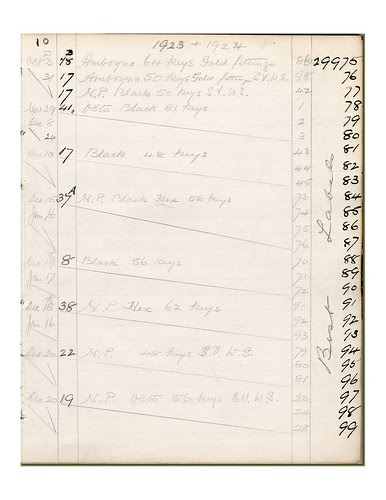 10
1923 + 1924
P 3
Oct 3 18 Amboyna 64 keys Gold fittings 86 29975
31 17 Amboyna 50 keys Gold fittings S.V.W.S. 98 76
17 N.P. Black 50 keys S.V.W.S. 42 77
Nov 29 41 Octo Black 81 keys 1 78
Dec 8 2 79
24 3 80
17 Black 48 keys 43 81
44 82
45 83
A
Dec 15 37 N.P. Black Hex 56 keys 73 84
Jan 16 74 85
75 86
76 87
8 Black 56 keys 70 88
Jan 17 71 89
72 90
Dec 18 38 N.P. Hex 62 keys 91 91
Jan 16 92 92
93 93
Dec 20 22 N.P. 48 keys S.V.W.S. 79 94
80 95
81 96
Dec 20 19 N.P. Octo 56 keys S.V.W.S. 97
24 98
99
Best Labels